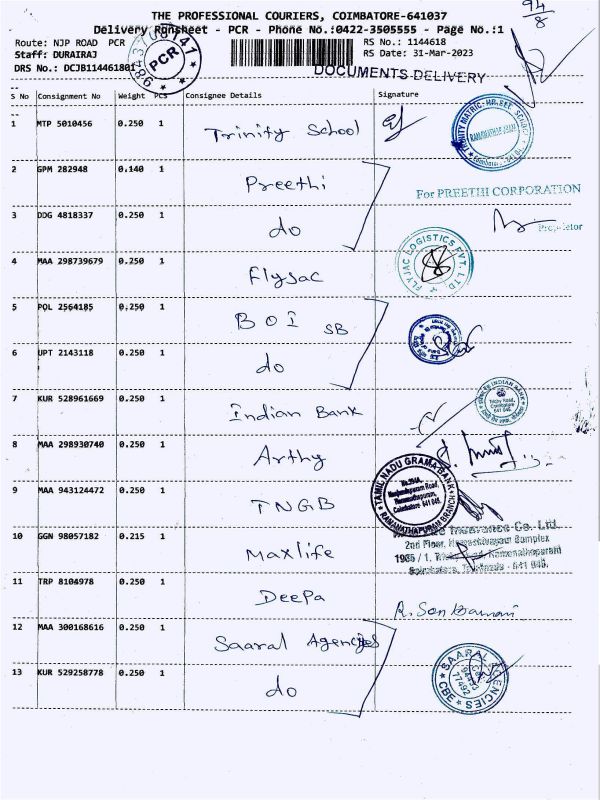 94/8
THE PROFESSIONAL COURIERS, COIMBATORE-641037
Delivery Runsheet - PCR - Phone No.:0422-3505555 - Page No.:1
Route: NJP ROAD PCR
RS No.: 1144618
Staff: DURAIRAJ
RS Date: 31-Mar-2023
DRS No.: DCJB114461801
PCR
DOCUMENTS DELIVERY
S No Consignment No Weight PCS Consignee Details Signature
1 MTP 5010456 0.250 1 Trinity School
2 GPM 282948 0.140 1 Preethi
For PREETHI CORPORATION
3 DDG 4818337 0.250 1 do
Proprietor
4 MAA 298739679 0.250 1 Flyjac
FLYJAC LOGISTICS PVT. LTD.
5 POL 2564185 0.250 1 BOI SB
6 UPT 2143118 0.250 1 do
7 KUR 528961669 0.250 1 Indian Bank
INDIAN BANK
Trichy Road,
Coimbatore
641 045.
8 MAA 298930740 0.250 1 Arthy
9 MAA 943124472 0.250 1 TNGB
TAMIL NADU GRAMA BANK
Ramanathapuram,
Coimbatore 641 045.
RAMANATHAPURAM BRANCH
10 GGN 98057182 0.215 1 Maxlife
Insurance Co. Ltd.
2nd Floor, Complex
641 045.
11 TRP 8104978 0.250 1 Deepa
12 MAA 300168616 0.250 1 Saaral Agencies
13 KUR 529258778 0.250 1 do
SAARAL AGENCIES
CBE